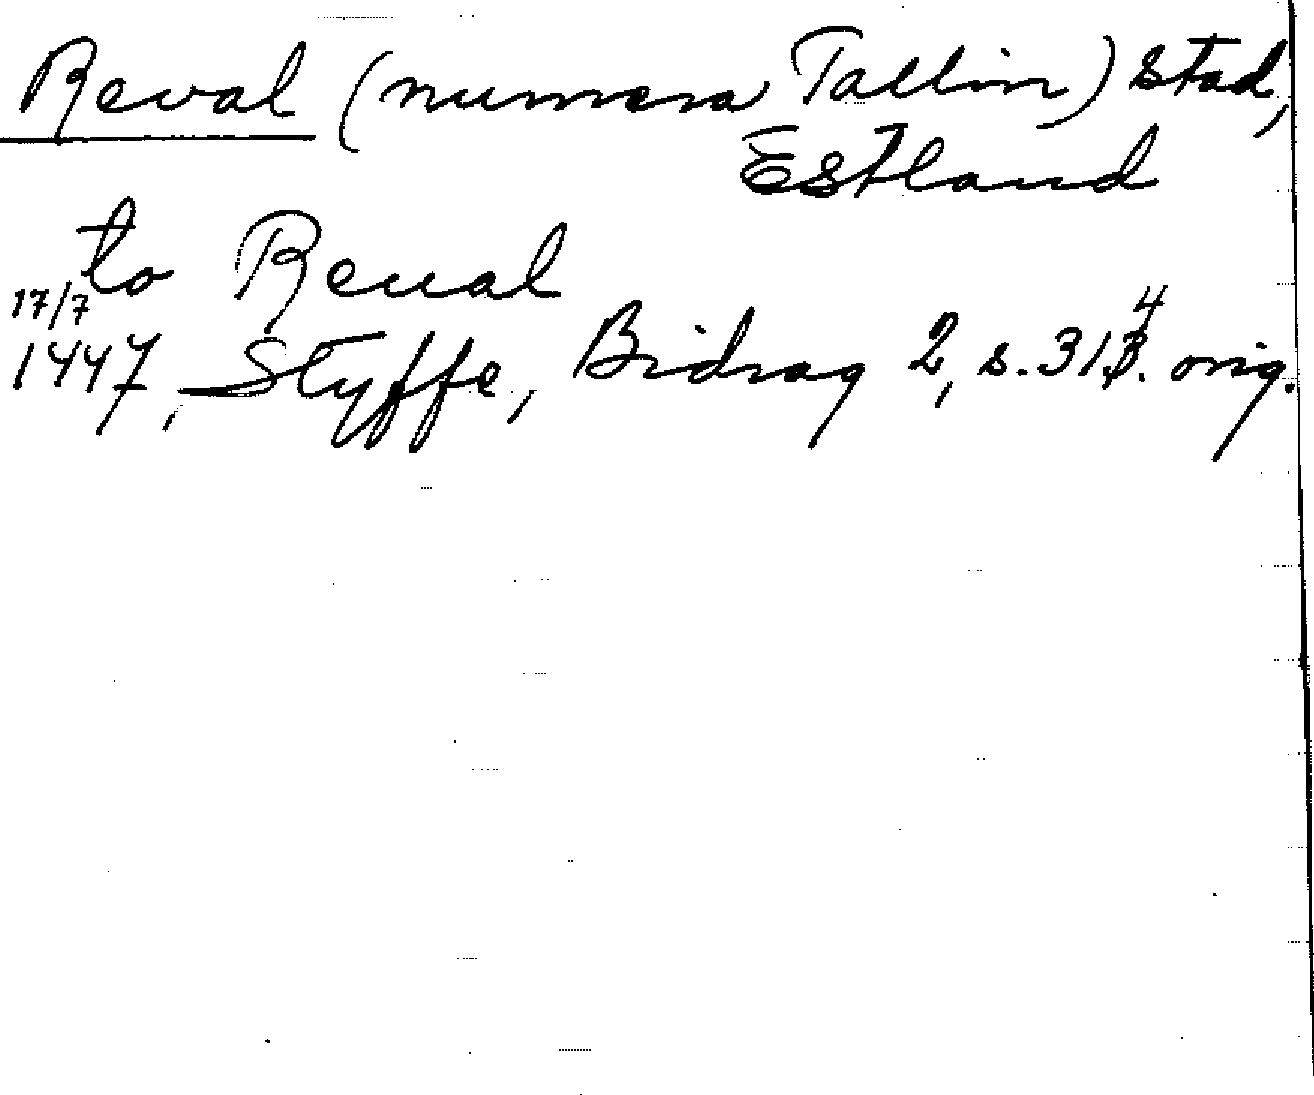 Reval (numera Tallin) stad,
Estland
to Reual
17/7
1447, Styffe, Bidrag 2, s. 314. orig.